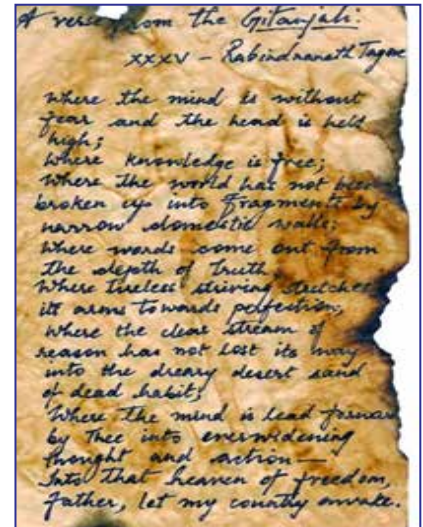 A verse from the Gitanjali.
XXXV – Rabindranath Tagore
Where the mind is without
fear and the head is held
high;
Where knowledge is free;
Where the world has not been
broken up into fragments by
narrow domestic walls;
Where words come out from
the depth of truth;
Where tireless striving stretches
its arms towards perfection;
Where the clear stream of
reason has not lost its way
into the dreary desert sand
of dead habit;
Where the mind is lead forward
by Thee into everwidening
thought and action—
Into that heaven of freedom,
Father, let my country awake.